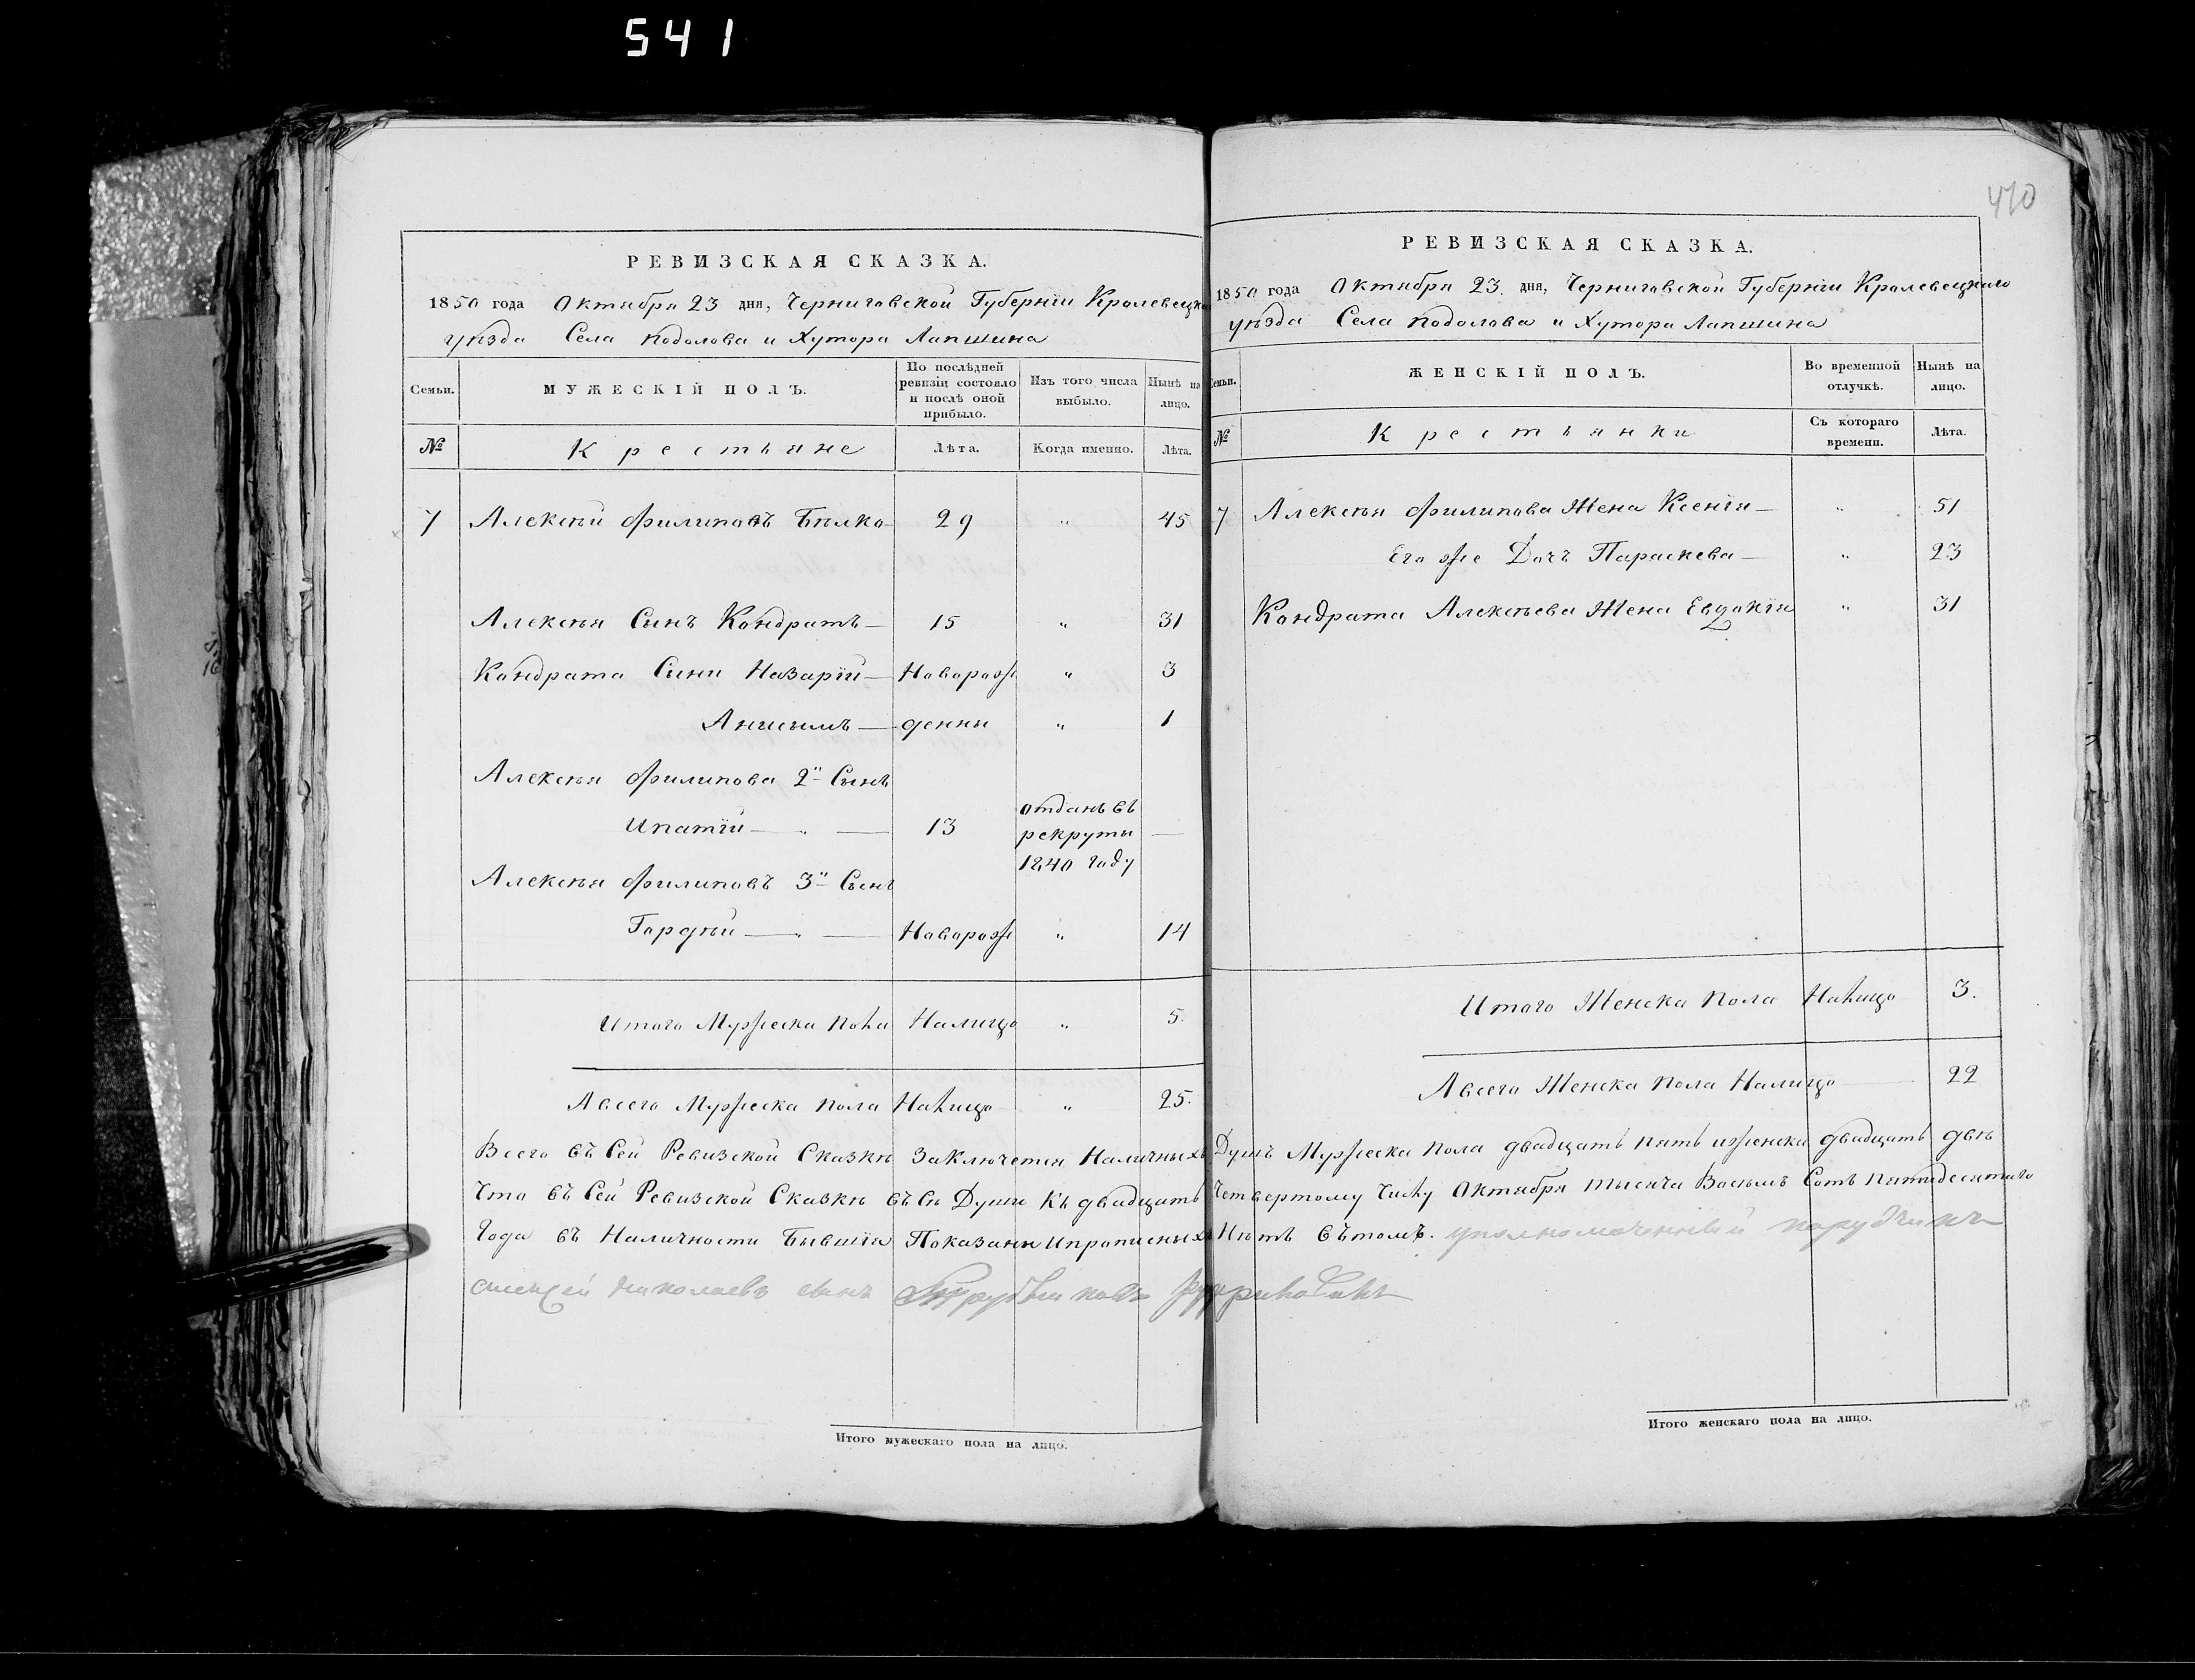 541
470
РЕВИЗСКАЯ СКАЗКА.
1850 года Октября 23 дня, Черниговской Губернїи Кролевецка
уѣзда Села Подолова и Хутора Лапшина
Семьи.
МУЖЕСКІЙ ПОЛЪ.
По послѣдней ревизіи состояло и послѣ оной прибыло.
Изъ того числа выбыло.
Нынѣ на лицо.
№
Крестьяне
Лѣта.
Когда именно.
Лѣта.
7 Алексѣй Филиповъ Бѣлко 29 " 45
Алексѣя Сынъ Кондратъ 15 " 31
Кондрата Сыни Назарїй Новорож " 3
Анисымъ денны " 1
Алексѣя Филипова 2й Сынъ
Ипатїй 13 отданъ въ рекруты 1840 году
Алексѣя Филиповъ 3й Сынъ
Гордѣй Новорож " 14
Итого Мужеска пола Налицо " 5.
А всего Мужеска пола Налицо " 25.
РЕВИЗСКАЯ СКАЗКА.
1850 года Октября 23 дня, Черниговской Губернїи Кролевецкаго
уѣзда Села Подолова и Хутора Лапшина
Семьи.
ЖЕНСКІЙ ПОЛЪ.
Во временной отлучкѣ.
Нынѣ на лицо.
№
Крестьянки
Съ котораго времени.
Лѣта.
7 Алексѣя Филипова Жена Ксенїя " 51
Его же Дочъ Параскева " 23
Кондрата Алексѣева Жена Евдокїя " 31
Итого Женска пола Налицо 3.
А всего Женска пола Налицо 22
Всего въ Сей Ревизской Сказкѣ Заключется Наличныхъ Душъ Мужеска пола двадцать пять и женска двадцать двѣ
Что въ Сей Ревизской Сказкѣ въсѣ Души Къ двадцать Четвертому Числу Октября тысяча Восьмъ Сотъ пятидесятаго
Года въ Наличности Бывшїя Показаны и прописныхъ Нѣтъ вътомъ. уполномоченный порутчикъ
алексей николаевъ сынъ
Итого мужескаго пола на лицо.
Итого женскаго пола на лицо.